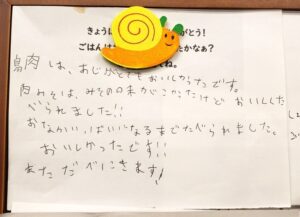 きょう　　　　がとう！
ごはんは　　　　たかなぁ？
　　　　ね。
鳥肉は、あじがとてもおいしかったです。
肉みそは、みその味がこかったけどおいしくた
べられました!!
おなかいっぱいになるまでたべられました。
おいしかったです!!
またたべにきます!